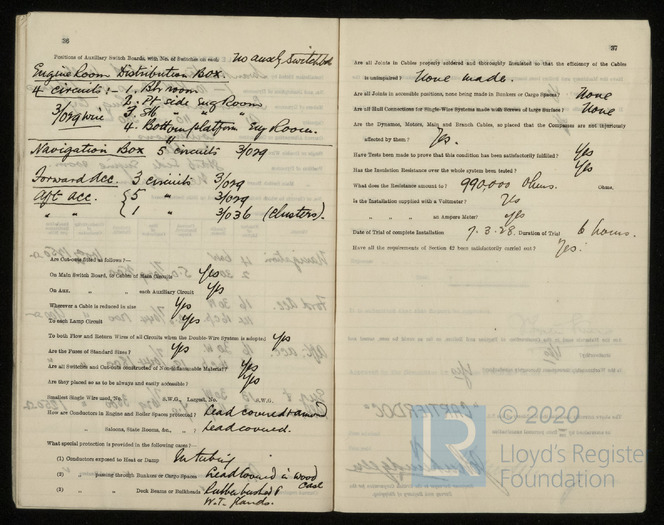 36
Positions of Auxiliary Switch Boards, with No. of Switches on each No auxy switchbds
Engine Room Distribution Box.
4 circuits :- 1. Blr room
2. Pt side Eng Room
3/029 wire 3. Stb " " "
4. Bottom platform Eng Room.
Navigation Box 5 circuits 3/029
Forward Acc. 3 circuits 3/029
Aft acc. { 5 " 3/029
" " { 1 " 3/036 (clusters).
Are Cut-outs fitted as follows?—
On Main Switch Board, to Cables of Main Circuits Yes
On Aux. " " each Auxiliary Circuit Yes
Wherever a Cable is reduced in size Yes
To each Lamp Circuit Yes
To both Flow and Return Wires of all Circuits when the Double-Wire System is adopted Yes
Are the Fuses of Standard Sizes? Yes
Are all Switches and Cut-outs constructed of Non-inflammable Material? Yes
Are they placed so as to be always and easily accessible? Yes
Smallest Single Wire used, No. S.W.G., Largest, No. S.W.G.
How are Conductors in Engine and Boiler Spaces protected? Lead covered & armd
" " Saloons, State Rooms, &c., " Lead covered.
What special protection is provided in the following cases?—
(1) Conductors exposed to Heat or Damp In tubing
(2) " passing through Bunkers or Cargo Spaces Lead covered in wood case
(3) " " Deck Beams or Bulkheads Rubber bushed &
W.T. glands.
37
Are all Joints in Cables properly soldered and thoroughly insulated so that the efficiency of the Cables
is unimpaired? None made.
Are all Joints in accessible positions, none being made in Bunkers or Cargo Spaces? None
Are all Hull Connections for Single-Wire Systems made with Screws of large Surface? None
Are the Dynamos, Motors, Main and Branch Cables, so placed that the Compasses are not injuriously
affected by them? Yes.
Have Tests been made to prove that this condition has been satisfactorily fulfilled? Yes
Has the Insulation Resistance over the whole system been tested? Yes
What does the Resistance amount to? 990,000 Ohms. Ohms.
Is the Installation supplied with a Voltmeter? Yes
" " " an Ampere Meter? Yes
Date of Trial of complete Installation 7.3.28 Duration of Trial 6 hours.
Have all the requirements of Section 42 been satisfactorily carried out? Yes.
© 2020
LR
Lloyd's Register
Foundation